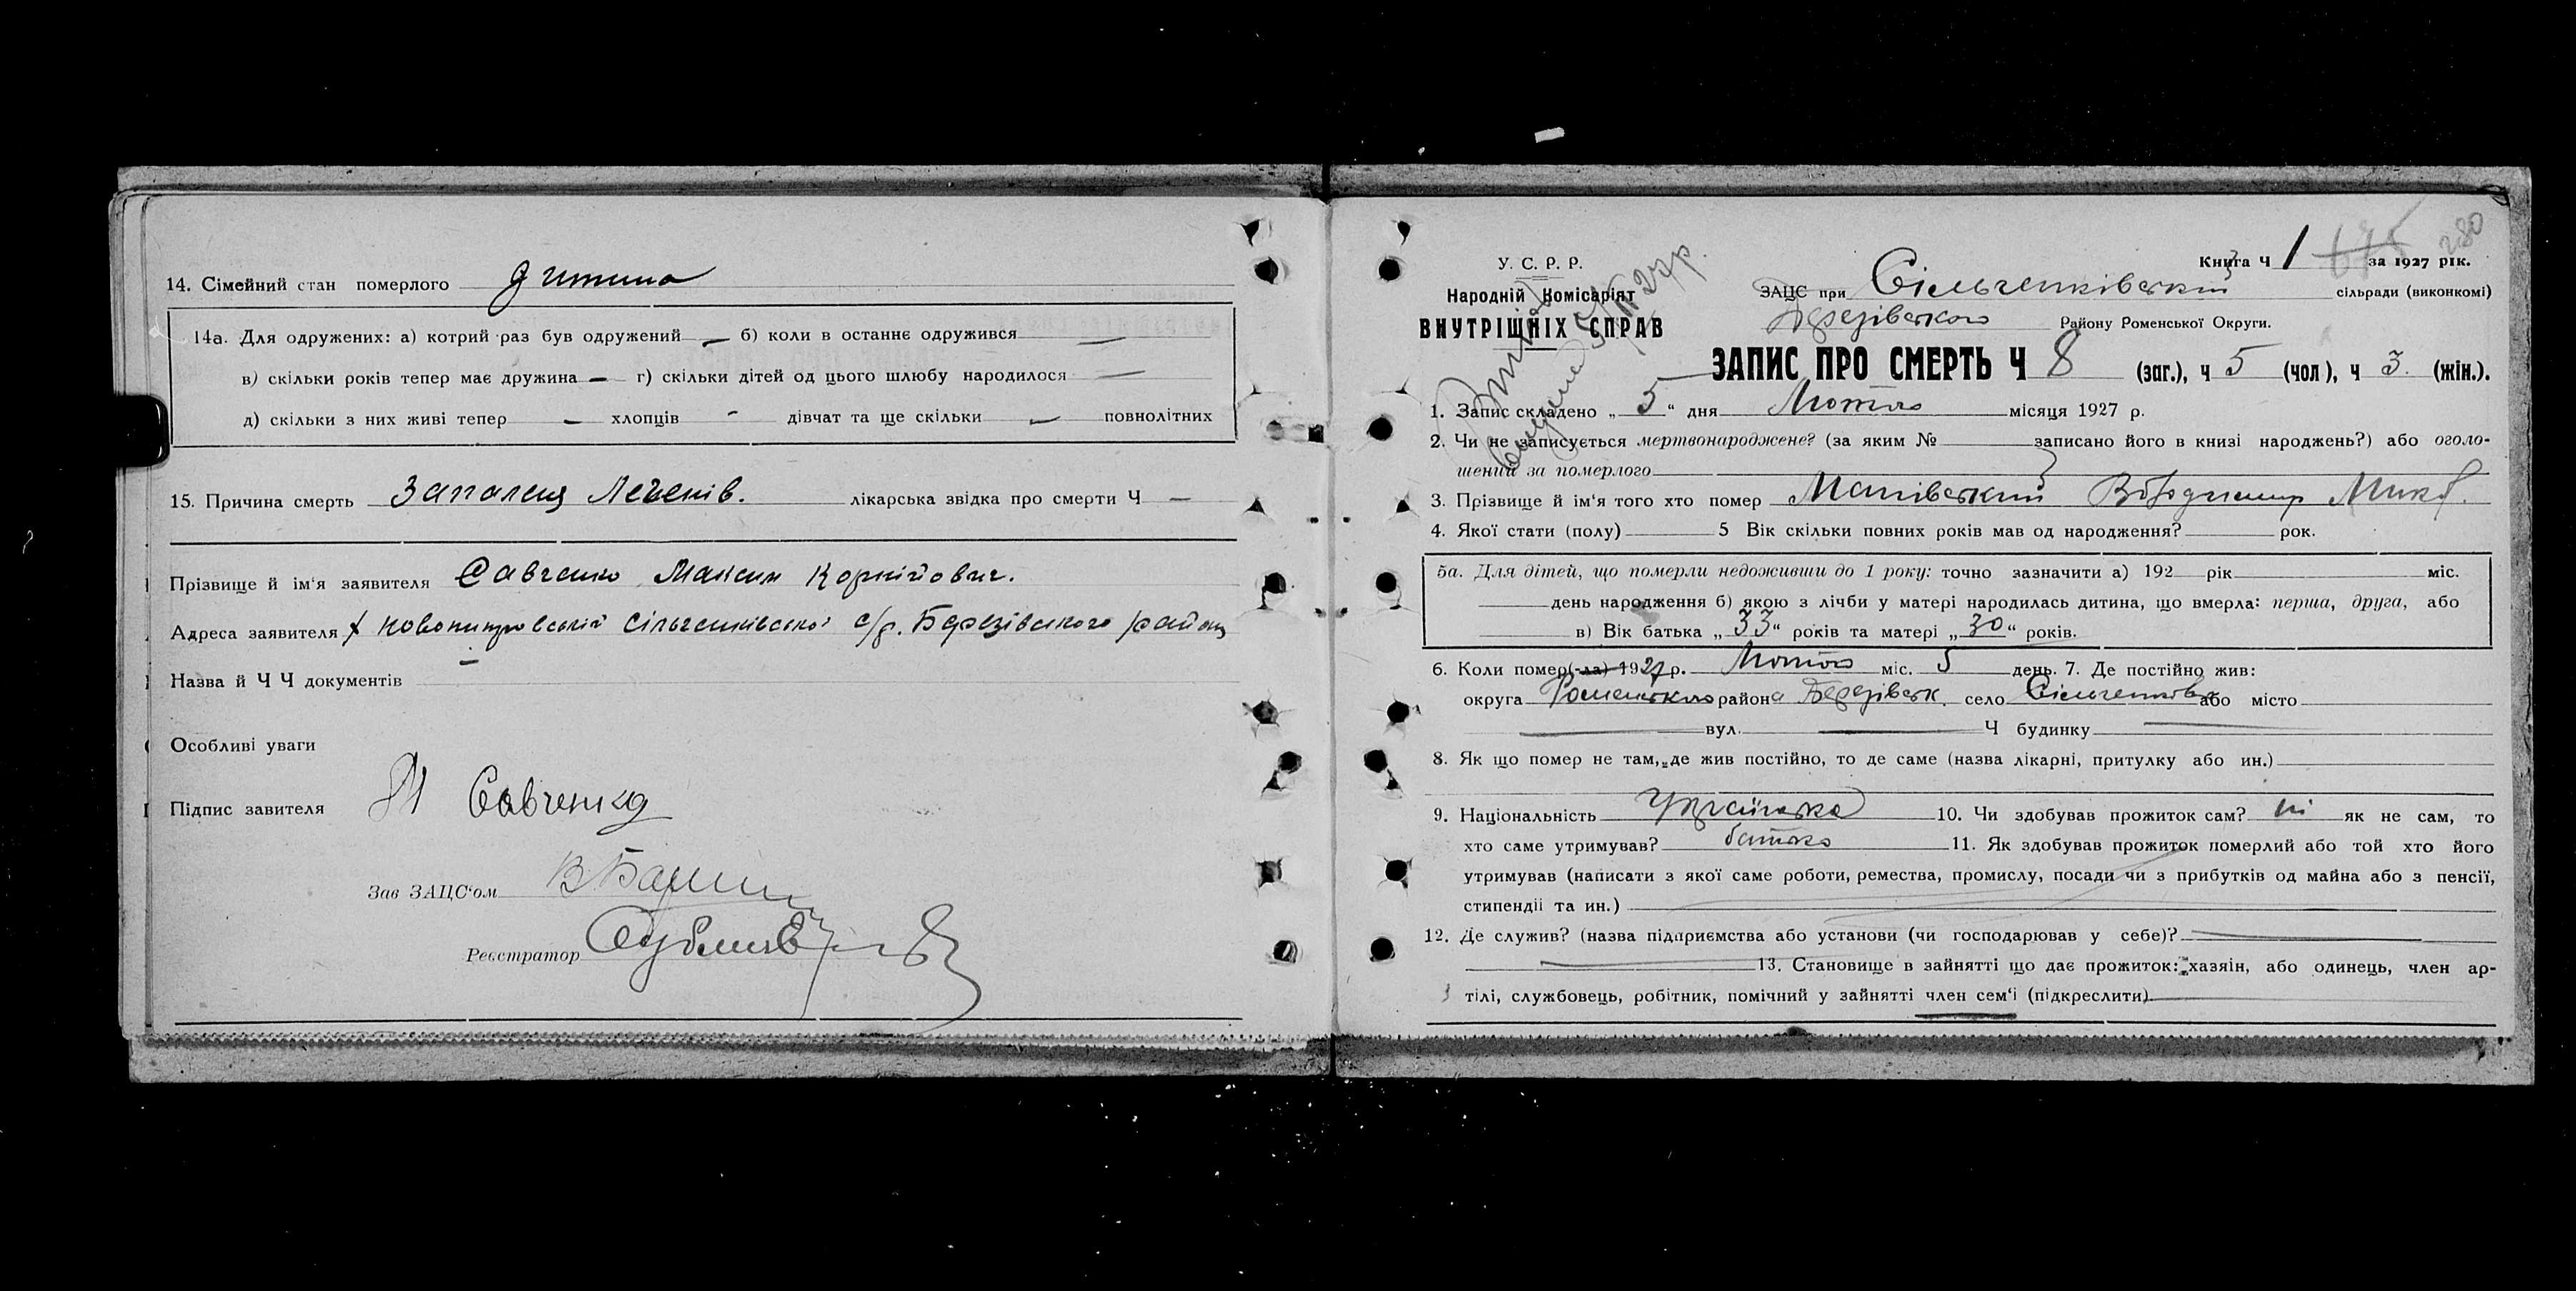 14. Сімейний стан померлого дитина
14а. Для одружених: а) котрий раз був одружений — б) коли в останнє одружився —
в) скільки років тепер має дружина — г) скільки дітей од цього шлюбу народилося —
д) скільки з них живі тепер — хлопців - дівчат та ще скільки — повнолітних
15. Причина смерть Запаленя Легенів. лікарська звідка про смерти Ч —
Прізвище й ім'я заявителя Савченко Максим Корнійович.
Адреса заявителя х Сільченківської с/р. Березівського району
Назва й Ч Ч документів —
Особливі уваги
Підпис завителя М Савченко
Зав ЗАЦС'ом
Реєстратор
Книга Ч 1 675 за 1927 рік.
280
У. С. Р. Р.
Народній Комісаріят
ВНУТРІШНІХ СПРАВ
ЗАЦС при Сільченківський сільради (виконкомі)
Березівського Району Роменської Округи.
ЗАПИС ПРО СМЕРТЬ Ч 8 (заг.), ч 5 (чол), ч 3 (жін.).
1. Запис складено „ 5 “ дня Лютого місяця 1927 р.
2. Чи не записується мертвонароджене? (за яким № записано його в книзі народжень?) або оголо-
шений за померлого
3. Прізвище й ім'я того хто помер Володимир Мик.
4. Якої стати (полу) 5 Вік скільки повних років мав од народження? рок.
5а. Для дітей, що померли недоживши до 1 року: точно зазначити а) 192 рік міс.
день народження б) якою з лічби у матері народилась дитина, що вмерла: перша, друга, або
в) Вік батька „ 33 “ років та матері „ 30 “ років.
6. Коли помер(-ла) 1927 р. Лютого міс. 5 день. 7. Де постійно жив:
округа Роменського района Березівськ. село Сільченков або місто
вул. Ч будинку
8. Як що помер не там, де жив постійно, то де саме (назва лікарні, притулку або ин.)
9. Національність Українська 10. Чи здобував прожиток сам? ні як не сам, то
хто саме утримував? батько 11. Як здобував прожиток померлий або той хто його
утримував (написати з якої саме роботи, ремества, промислу, посади чи з прибутків од майна або з пенсії,
стипендії та ин.)
12. Де служив? (назва підприємства або установи (чи господарював у себе)?
13. Становище в зайнятті що дає прожиток: хазяін, або одинець, член ар-
тілі, службовець, робітник, помічний у зайнятті член сем'ї (підкреслити).